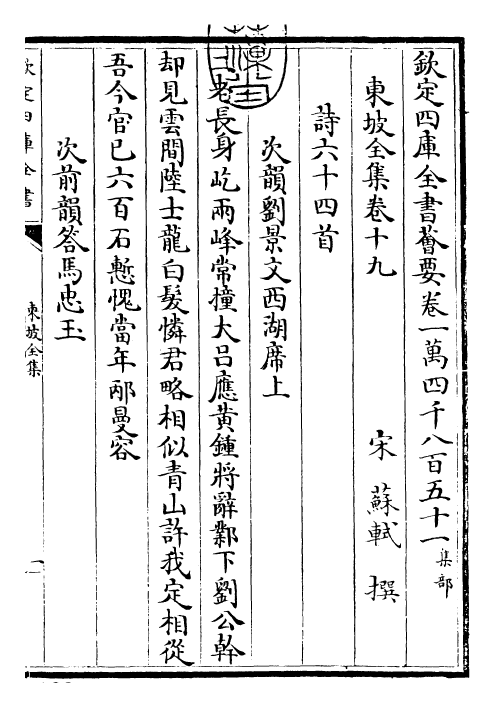 欽定四庫全書薈要卷一萬四千八百五十一集部
東坡全集卷十九
宋蘇軾撰
詩六十四首
次韻劉景文西湖席上
老長身屹兩峰常撞大呂應黄鍾將辭鄴下劉公幹
却見雲間陸士龍白髮憐君略相似青山許我定相從
吾今官已六百石慙愧當年邴曼容
次前韻答馬忠玉
欽定四庫全書
東坡全集
一